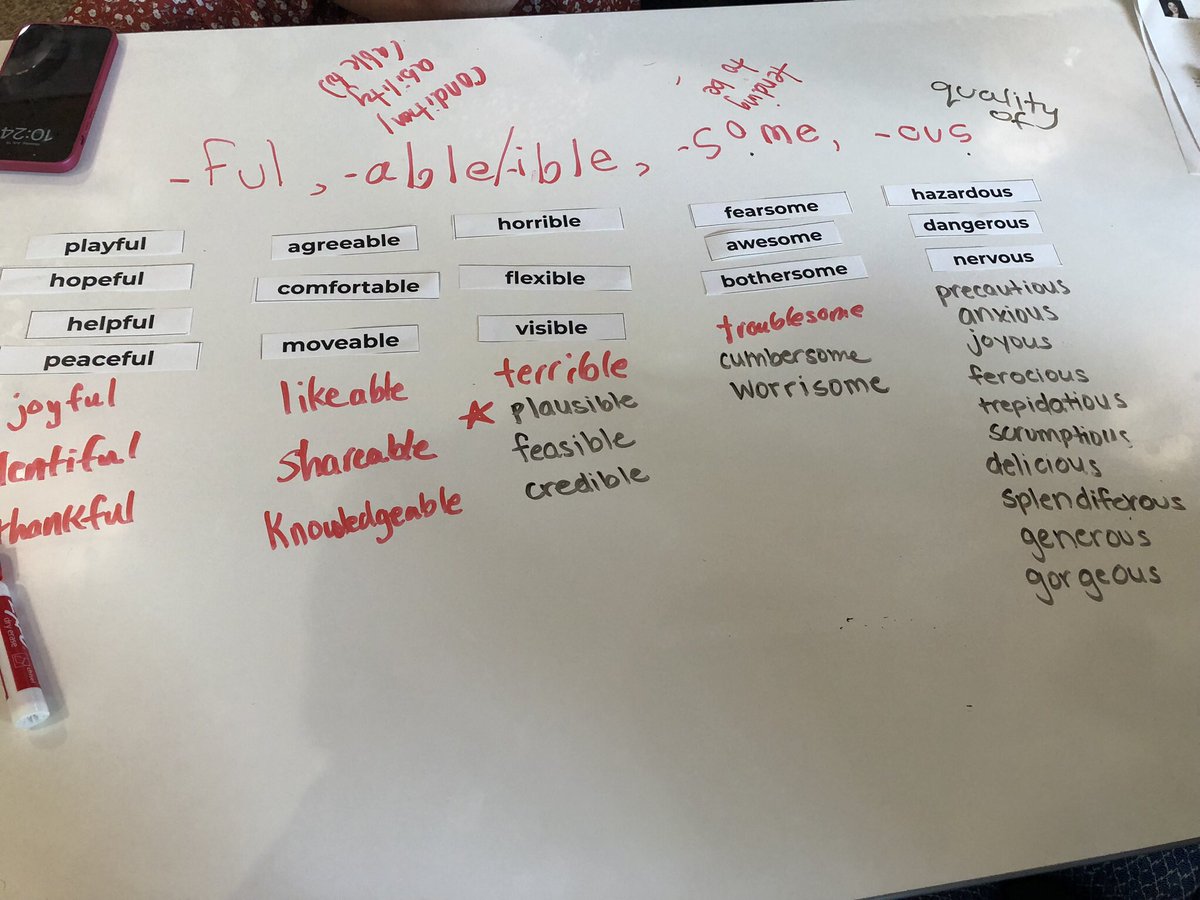 10:24
condition/
ability
(able to)
tending
to be
quality
of
-ful, -able/-ible, -some, -ous
playful
hopeful
helpful
peaceful
joyful
lentiful
thankful
agreeable
comfortable
moveable
likeable
shareable
Knowledgeable
horrible
flexible
visible
terrible
plausible
feasible
credible
fearsome
awesome
bothersome
troublesome
cumbersome
worrisome
hazardous
dangerous
nervous
precautious
anxious
joyous
ferocious
trepidatious
scrumptious
delicious
splendiferous
generous
gorgeous
dry erase